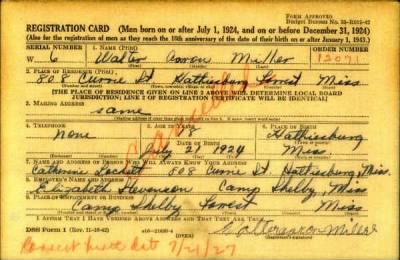 FORM APPROVED
Budget Bureau No. 33-R012-42
REGISTRATION CARD (Men born on or after July 1, 1924, and on or before December 31, 1924)
(Also for the registration of men as they reach the 18th anniversary of the date of their birth on or after January 1, 1943.)
SERIAL NUMBER 1. NAME (Print) ORDER NUMBER
W 6 Walter Aaron Miller 12071
2. PLACE OF RESIDENCE (Print)
808 Currie St Hattiesburg Forrest Miss
[THE PLACE OF RESIDENCE GIVEN ON LINE 2 ABOVE WILL DETERMINE LOCAL BOARD
JURISDICTION; LINE 2 OF REGISTRATION CERTIFICATE WILL BE IDENTICAL]
3. MAILING ADDRESS
same
4. TELEPHONE 5. AGE IN YEARS 6. PLACE OF BIRTH
none 18 Hattiesburg
DATE OF BIRTH
July 21 1924 Miss
7. NAME AND ADDRESS OF PERSON WHO WILL ALWAYS KNOW YOUR ADDRESS
Catherine Lockett 808 Currie St. Hattiesburg, Miss.
8. EMPLOYER'S NAME AND ADDRESS
Elizabeth Stevenson Camp Shelby, Miss
9. PLACE OF EMPLOYMENT OR BUSINESS
Camp Shelby Forrest Miss
I AFFIRM THAT I HAVE VERIFIED ABOVE ANSWERS AND THAT THEY ARE TRUE.
DSS Form 1 (Rev. 11-16-42) 16-21630-4 Walter Aaron Miller
(Registrant's signature)
Correct birth date 7/21/27